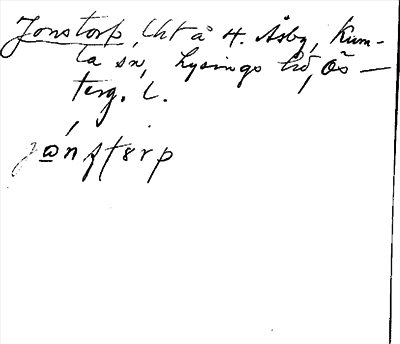 Jonstorp, lht å H. Åsby, Kum-
la sn, Lysings hd, Ös-
terg. l.
jɷ́nstɘrp